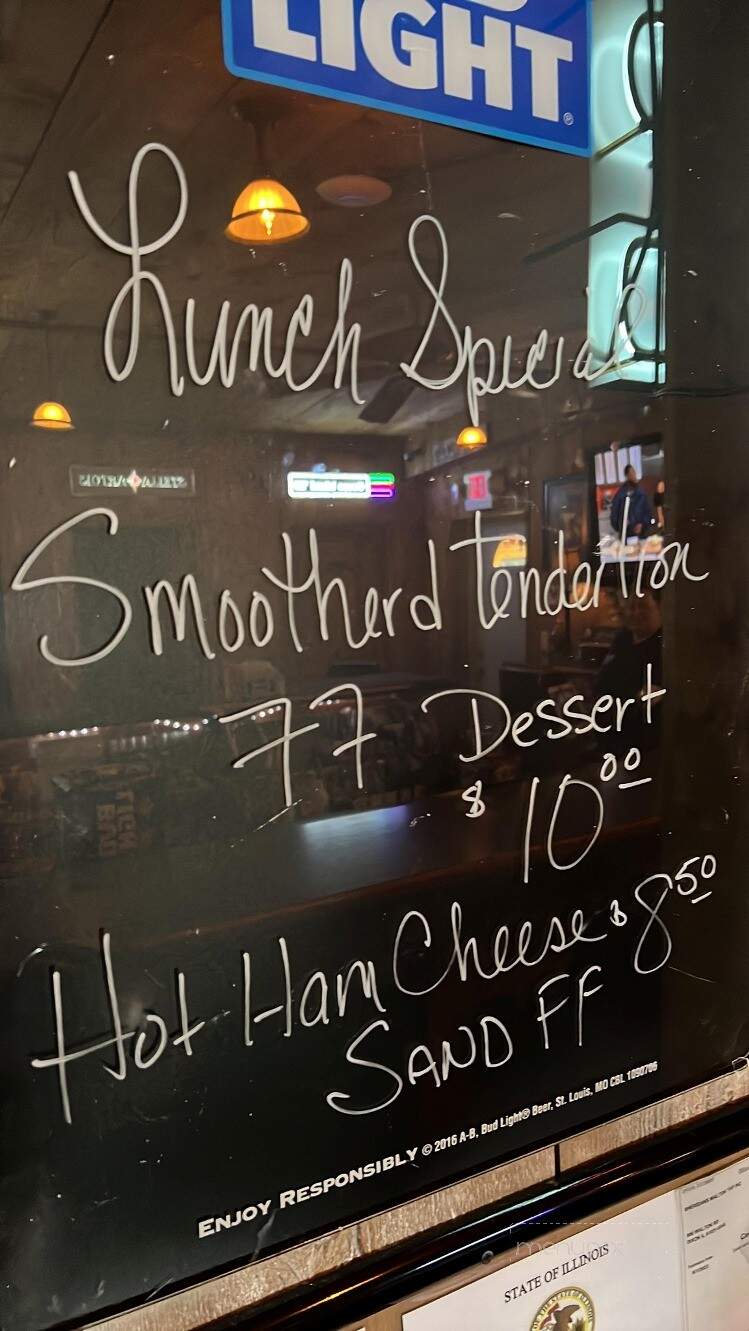 LIGHT®
Lunch Special
Smootherd tenderlion
77 Dessert
$ 10 00
Hot Ham Cheese $ 8 50
SAND FF
ENJOY RESPONSIBLY © 2016 A-B, Bud Light® Beer, St. Louis, MO CBL 1090706
STATE OF ILLINOIS